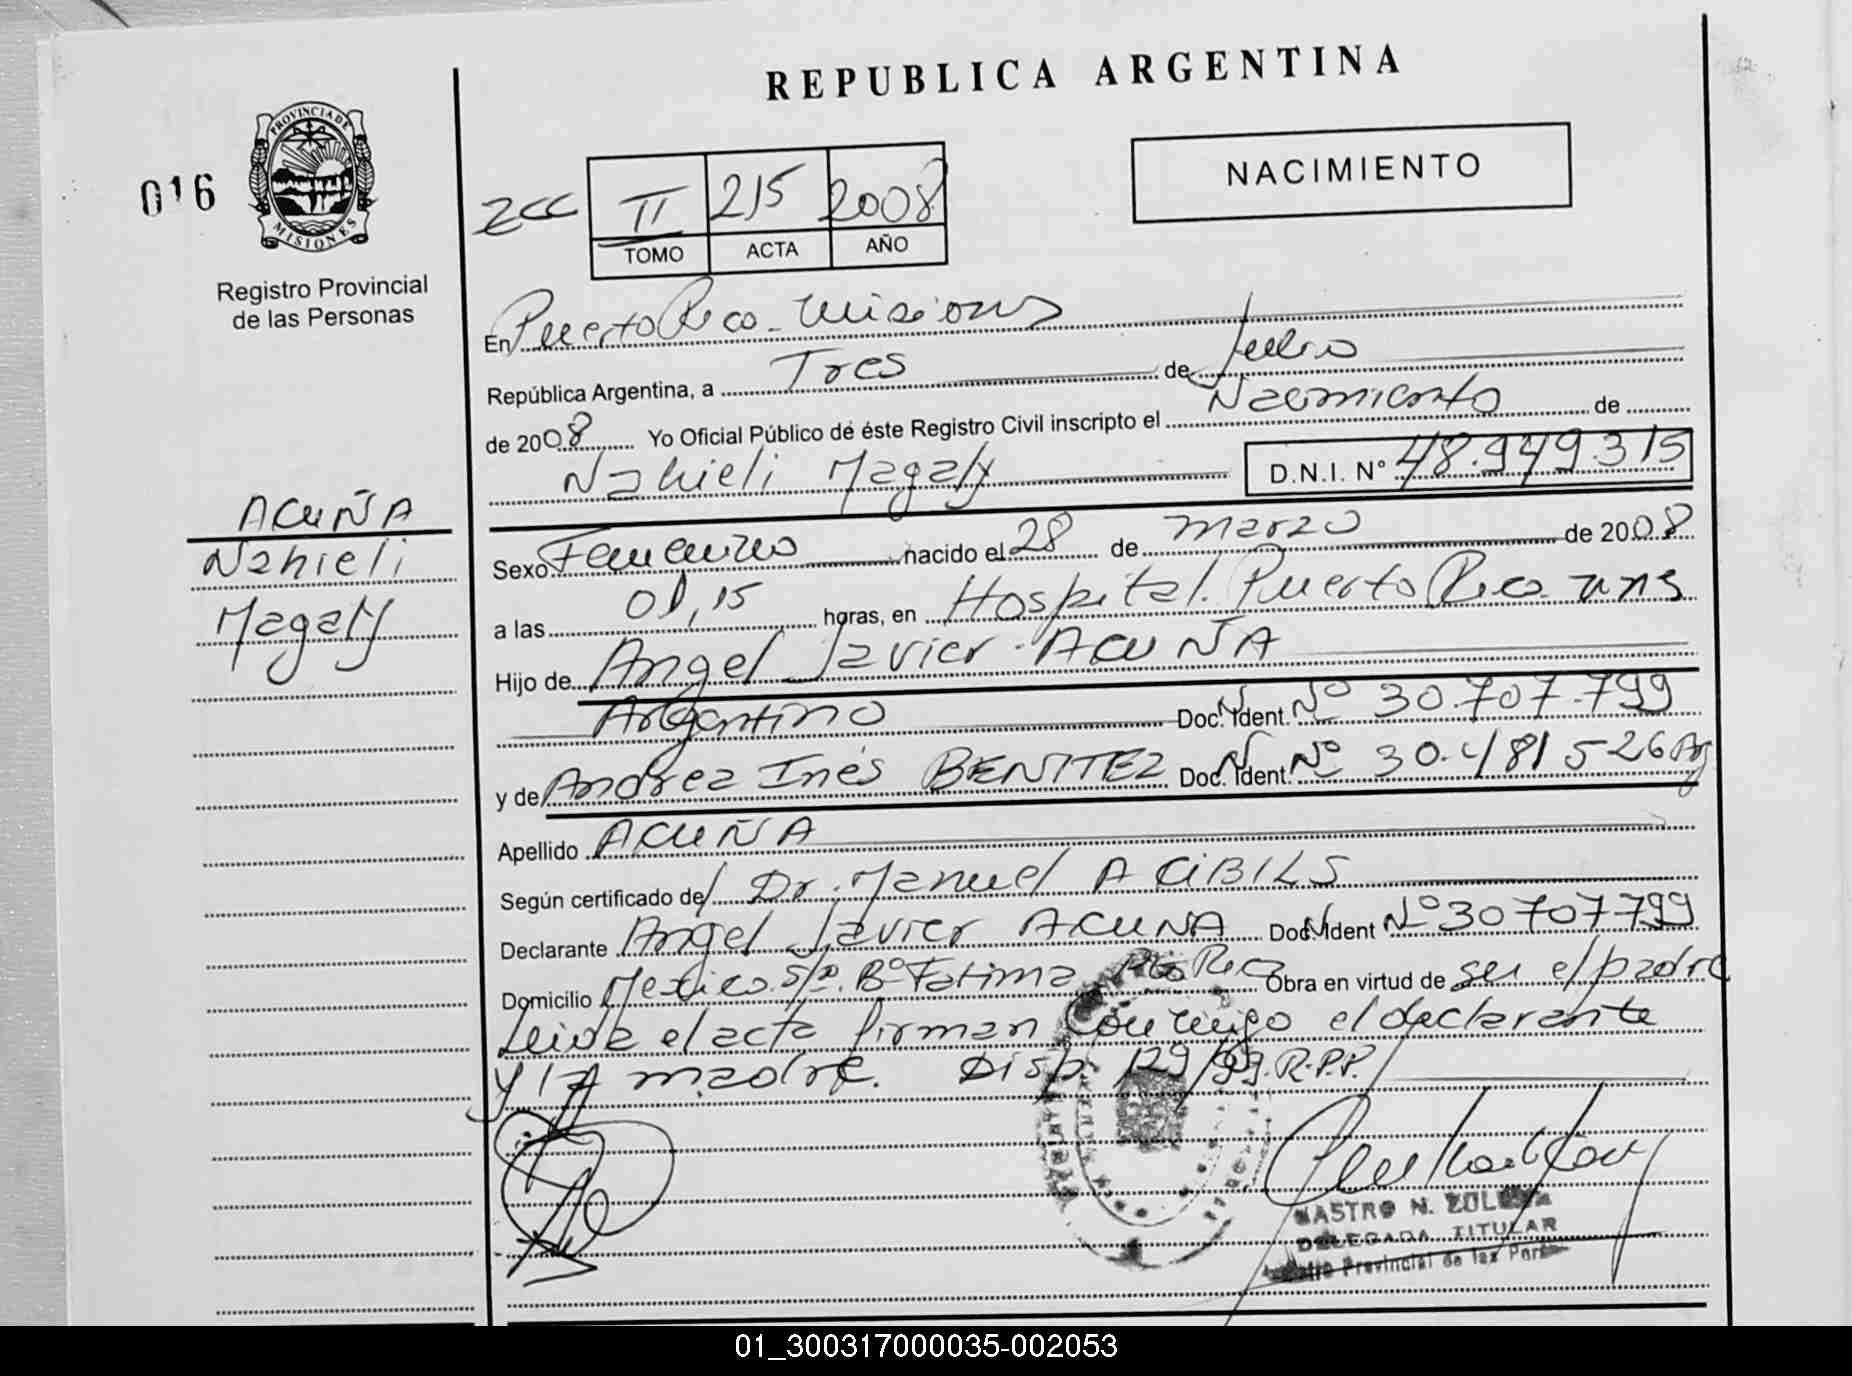 REPUBLICA ARGENTINA
016
PROVINCIA DE
MISIONES
Registro Provincial
de las Personas
II 215 2008
TOMO ACTA AÑO
NACIMIENTO
En Puerto Rico - Misiones
República Argentina, a Tres de Julio
de 2008 Yo Oficial Público de éste Registro Civil inscripto el Nacimiento de
Nahieli Magaly D.N.I. N° 48.949.315
ACUÑA
Nahieli
Magaly
Sexo Femenino nacido el 28 de marzo de 2008
a las 01,15 horas, en Hospital. Puerto Rico mns
Hijo de Angel Javier ACUÑA
Argentino Doc. Ident. N° 30.707.799
y de Andrea Inés BENITEZ Doc. Ident. N° 30.481526 Arg
Apellido ACUÑA
Según certificado del Dr. Manuel A CIBILS
Declarante Angel Javier ACUÑA Doc. Ident N° 30707799
Domicilio Mexico s/n. B° Fatima Pto Rico Obra en virtud de ser el padre
Leida el acta firman conmigo el declarante
y la madre. Disp. 129/99. R.P.P.
DELEGADA TITULAR
Provincial de las
01_300317000035-002053